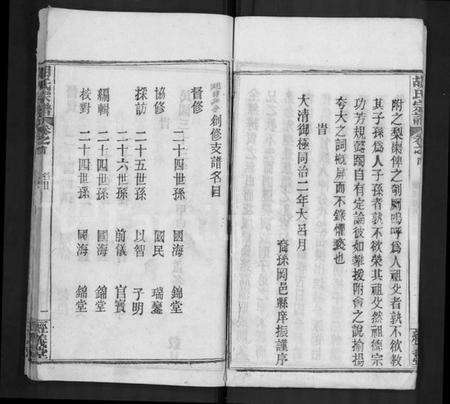 胡氏宗譜 卷之首
附之梨俾之剞劂嗚呼為人祖父者孰不欲教
其子孫為人子孫者孰不欲榮其祖父然祖德宗
功芳規懿閫自有定論彼如攀援附會之說揄揚
夸大之詞概屏而不錄懼褻也
旹
大清御極同治二年大呂月
裔孫岡邑縣庠振謹序
經義堂
創修支譜名目
督修 二十四世孫 國海 錦堂
協修 國民 瑞鑾
採訪 二十五世孫 以智 子明
二十六世孫 前儀 官賓
編輯 二十四世孫 國海 錦堂
校對 二十四世孫 國海 錦堂
胡氏宗譜 卷之首
一
經義堂